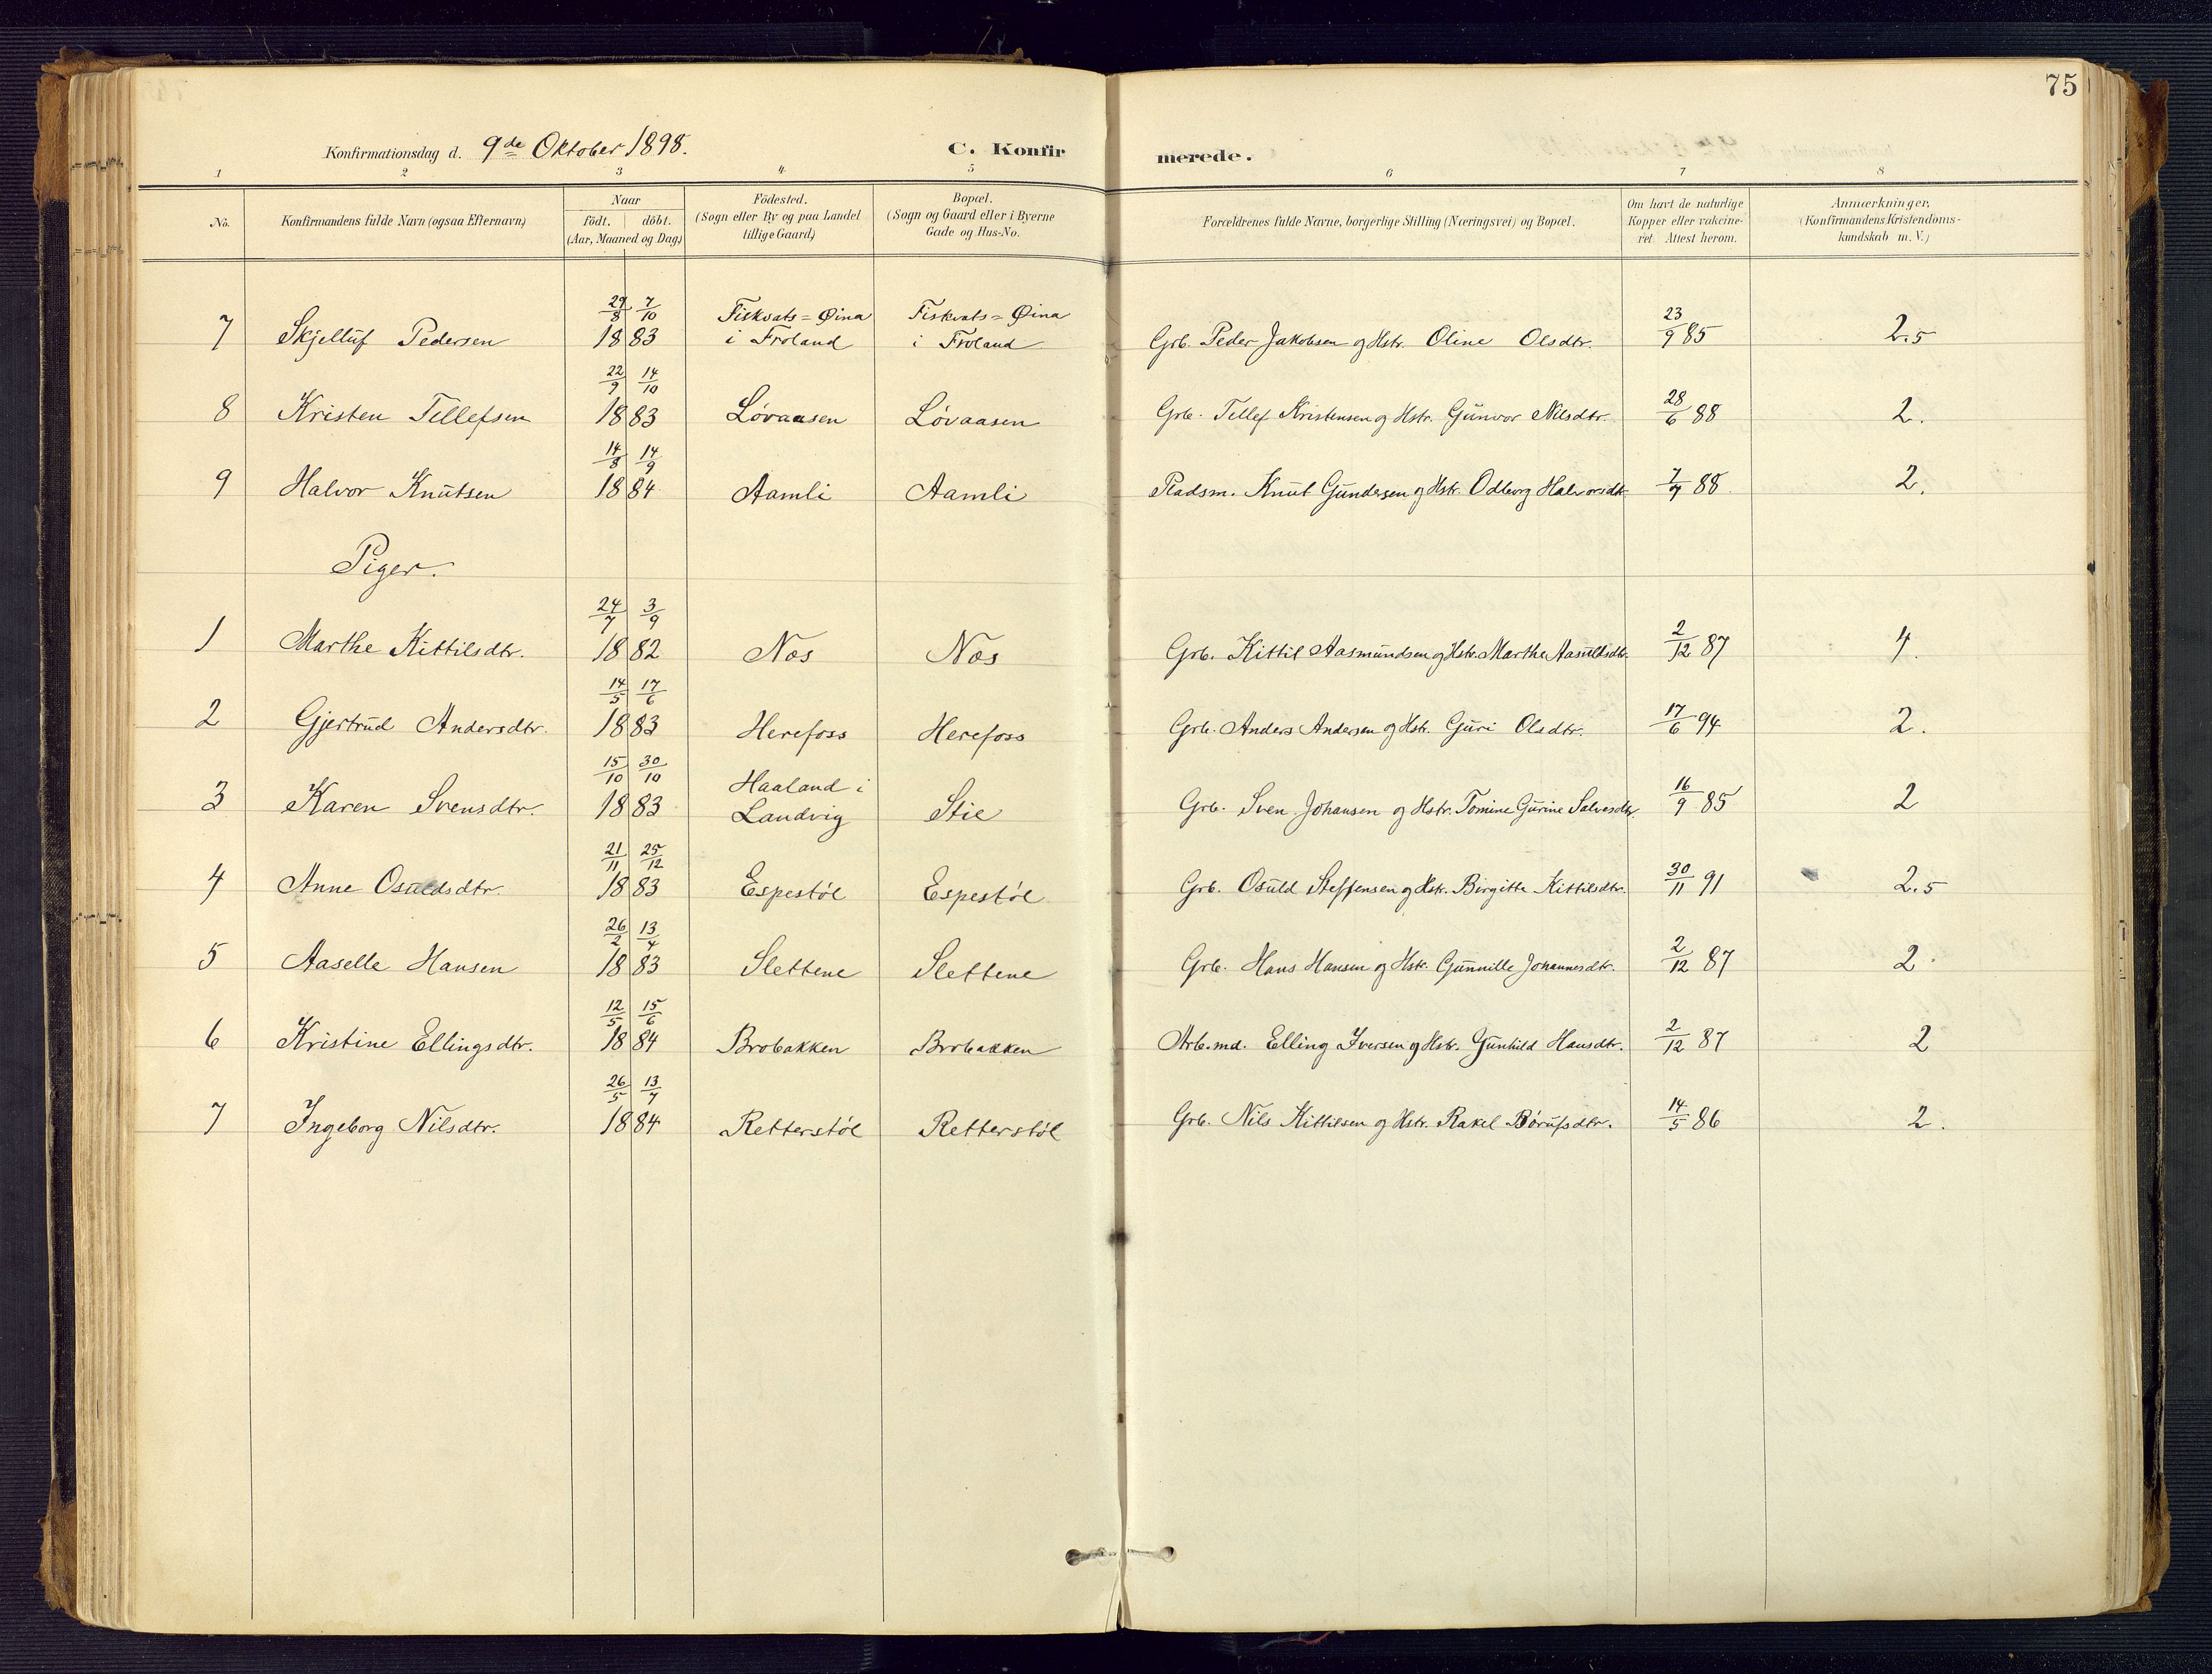 75
Konfirmationsdag d. 9de Oktober 1898. C. Konfirmerede.
1 2 3 4 5 6 7 8
No. Konfirmandens fulde Navn (ogsaa Efternavn) Naar födt. döbt. (Aar, Maaned og Dag) Födested. (Sogn eller By og paa Landet tillige Gaard) Bopæl. (Sogn og Gaard eller i Byerne Gade og Hus-No. Forældrenes fulde Navne, borgerlige Stilling (Næringsvei) og Bopæl. Om havt de naturlige Kopper eller vakcineret. Attest herom. Anmærkninger, (Konfirmandens Kristendomskundskab m. V.)
7 Skjelluf Pedersen 29/8 7/10 1883 Fiskvats=Øina i Froland Fiskvats=Øina i Froland Grb. Peder Jakobsen og Hstr. Oline Olsdtr. 23/9 85 2.5
8 Kristen Tellefsen 22/9 14/10 1883 Løvaasen Løvaasen Grb. Tellef Kristensen og Hstr. Gunvor Nilsdtr. 28/6 88 2.
9 Halvor Knutsen 14/8 14/9 1884 Aamli Aamli Pladsm. Knut Gundersen og Hstr. Odborg Halvorsdtr. 7/7 88. 2.
Piger.
1 Marthe Kittilsdtr. 24/7 3/9 1882 Nos Nos Grb. Kittil Aasmundsen og Hstr. Marthe Aasuldsdtr. 2/12 87 4.
2 Gjertrud Andersdtr. 14/5 17/6 1883 Herefoss Herefoss Grb. Anders Andersen og Hstr. Guri Olsdtr. 17/6 94 2.
3 Karen Svensdtr. 15/10 30/10 1883 Haaland i Landvig Stie Grb. Sven Johansen og Hstr. Tomine Gurine Salvesdtr. 16/9 85 2
4 Anne Osuldsdtr. 21/11 25/12 1883 Espestøl Espestøl Grb. Osuld Steffensen og Hstr. Birgitte Kittilsdtr. 30/11 91 2.5
5 Aaselle Hansen 26/2 13/4 1883 Slettene Slettene Grb. Hans Hansen og Hstr. Gunnille Johannesdtr. 2/12 87 2.
6 Kristine Ellingsdtr. 12/5 15/6 1884 Brobakken Brobakken Arb.md. Elling Iversen og Hstr. Gunhild Hansdtr. 2/12 87 2
7 Ingeborg Nilsdtr. 26/5 13/7 1884 Retterstøl Retterstøl Grb. Nils Kittilsen og Hstr. Rakel Børufsdtr. 14/5 86 2.